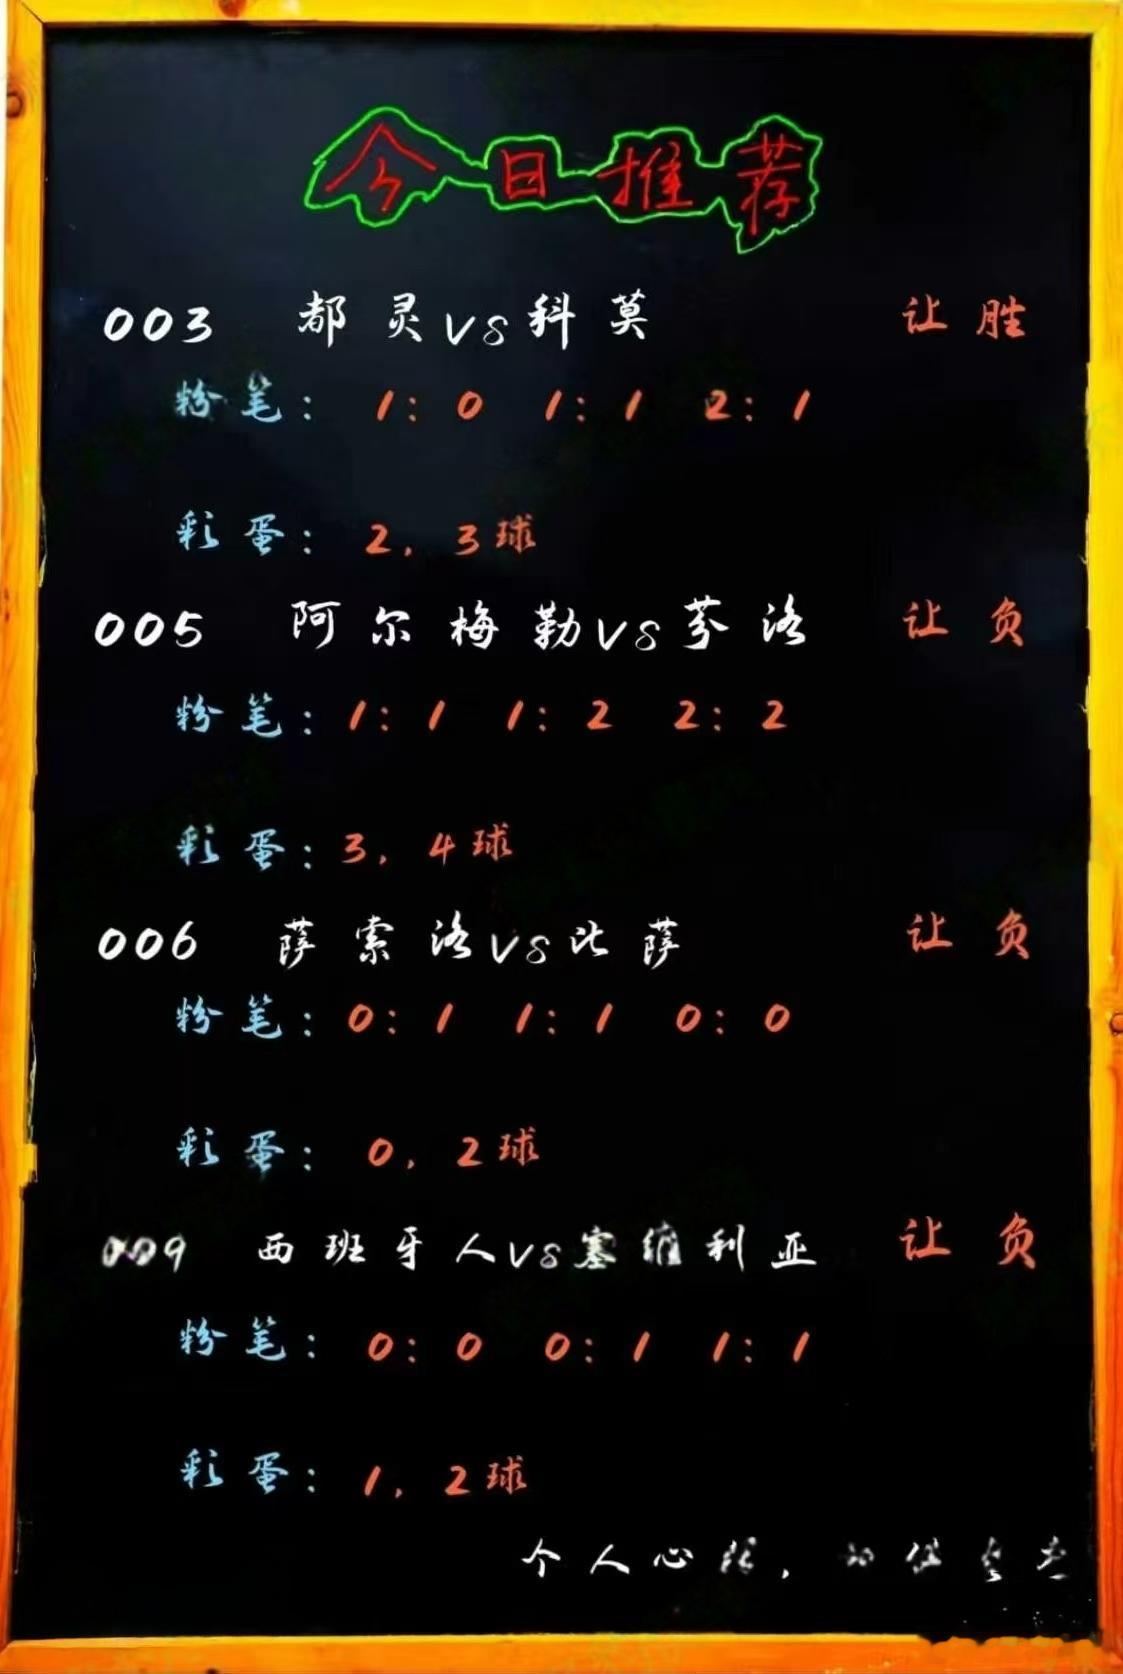 今日推荐
003 都灵VS科莫 让胜
粉笔: 1:0 1:1 2:1
彩蛋: 2, 3球
005 阿尔梅勒VS芬洛 让负
粉笔: 1:1 1:2 2:2
彩蛋: 3, 4球
006 萨索洛VS比萨 让负
粉笔: 0:1 1:1 0:0
彩蛋: 0, 2球
009 西班牙人VS塞维利亚 让负
粉笔: 0:0 0:1 1:1
彩蛋: 1, 2球
个人心